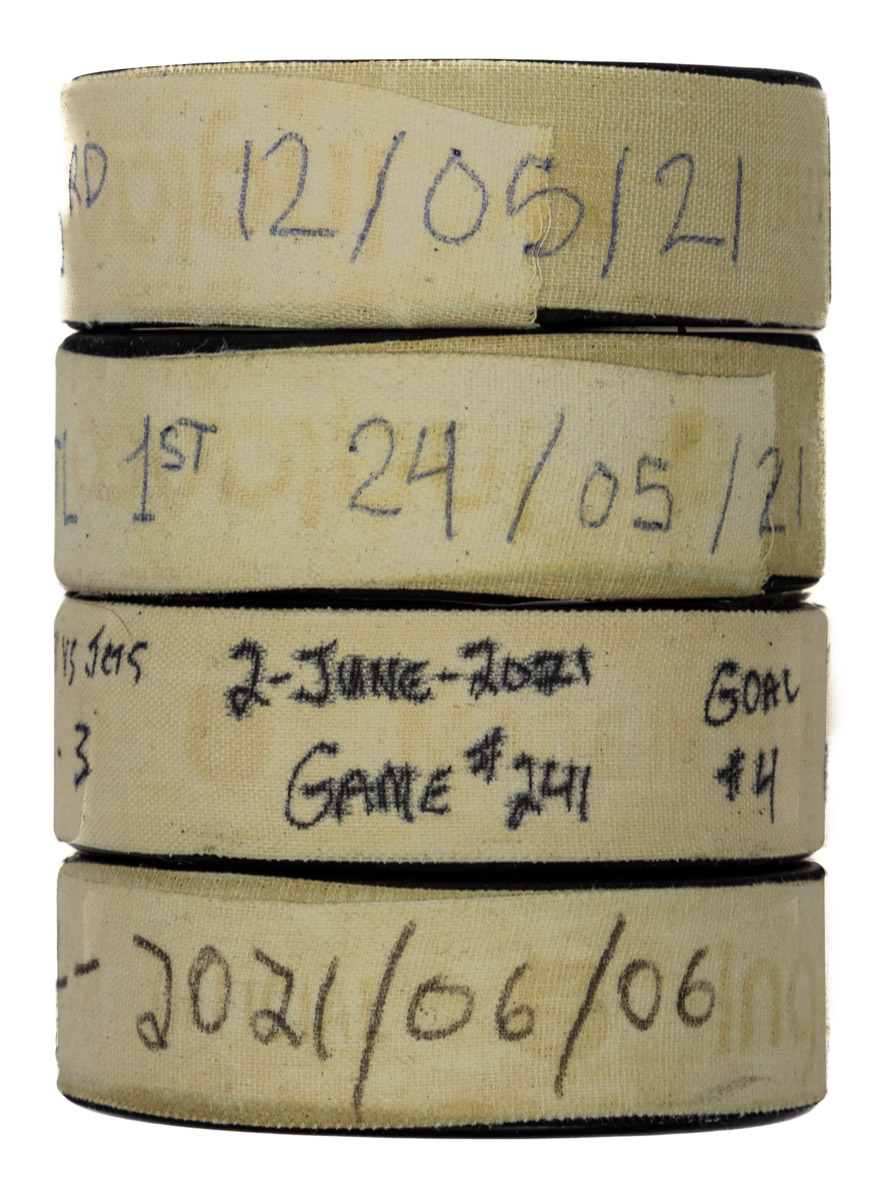 RD 12/05/21
TL 1ST 24/05/21
VS JETS 2-JUNE-2021 GOAL
- 3 GAME #241 #4
- 2021/06/06